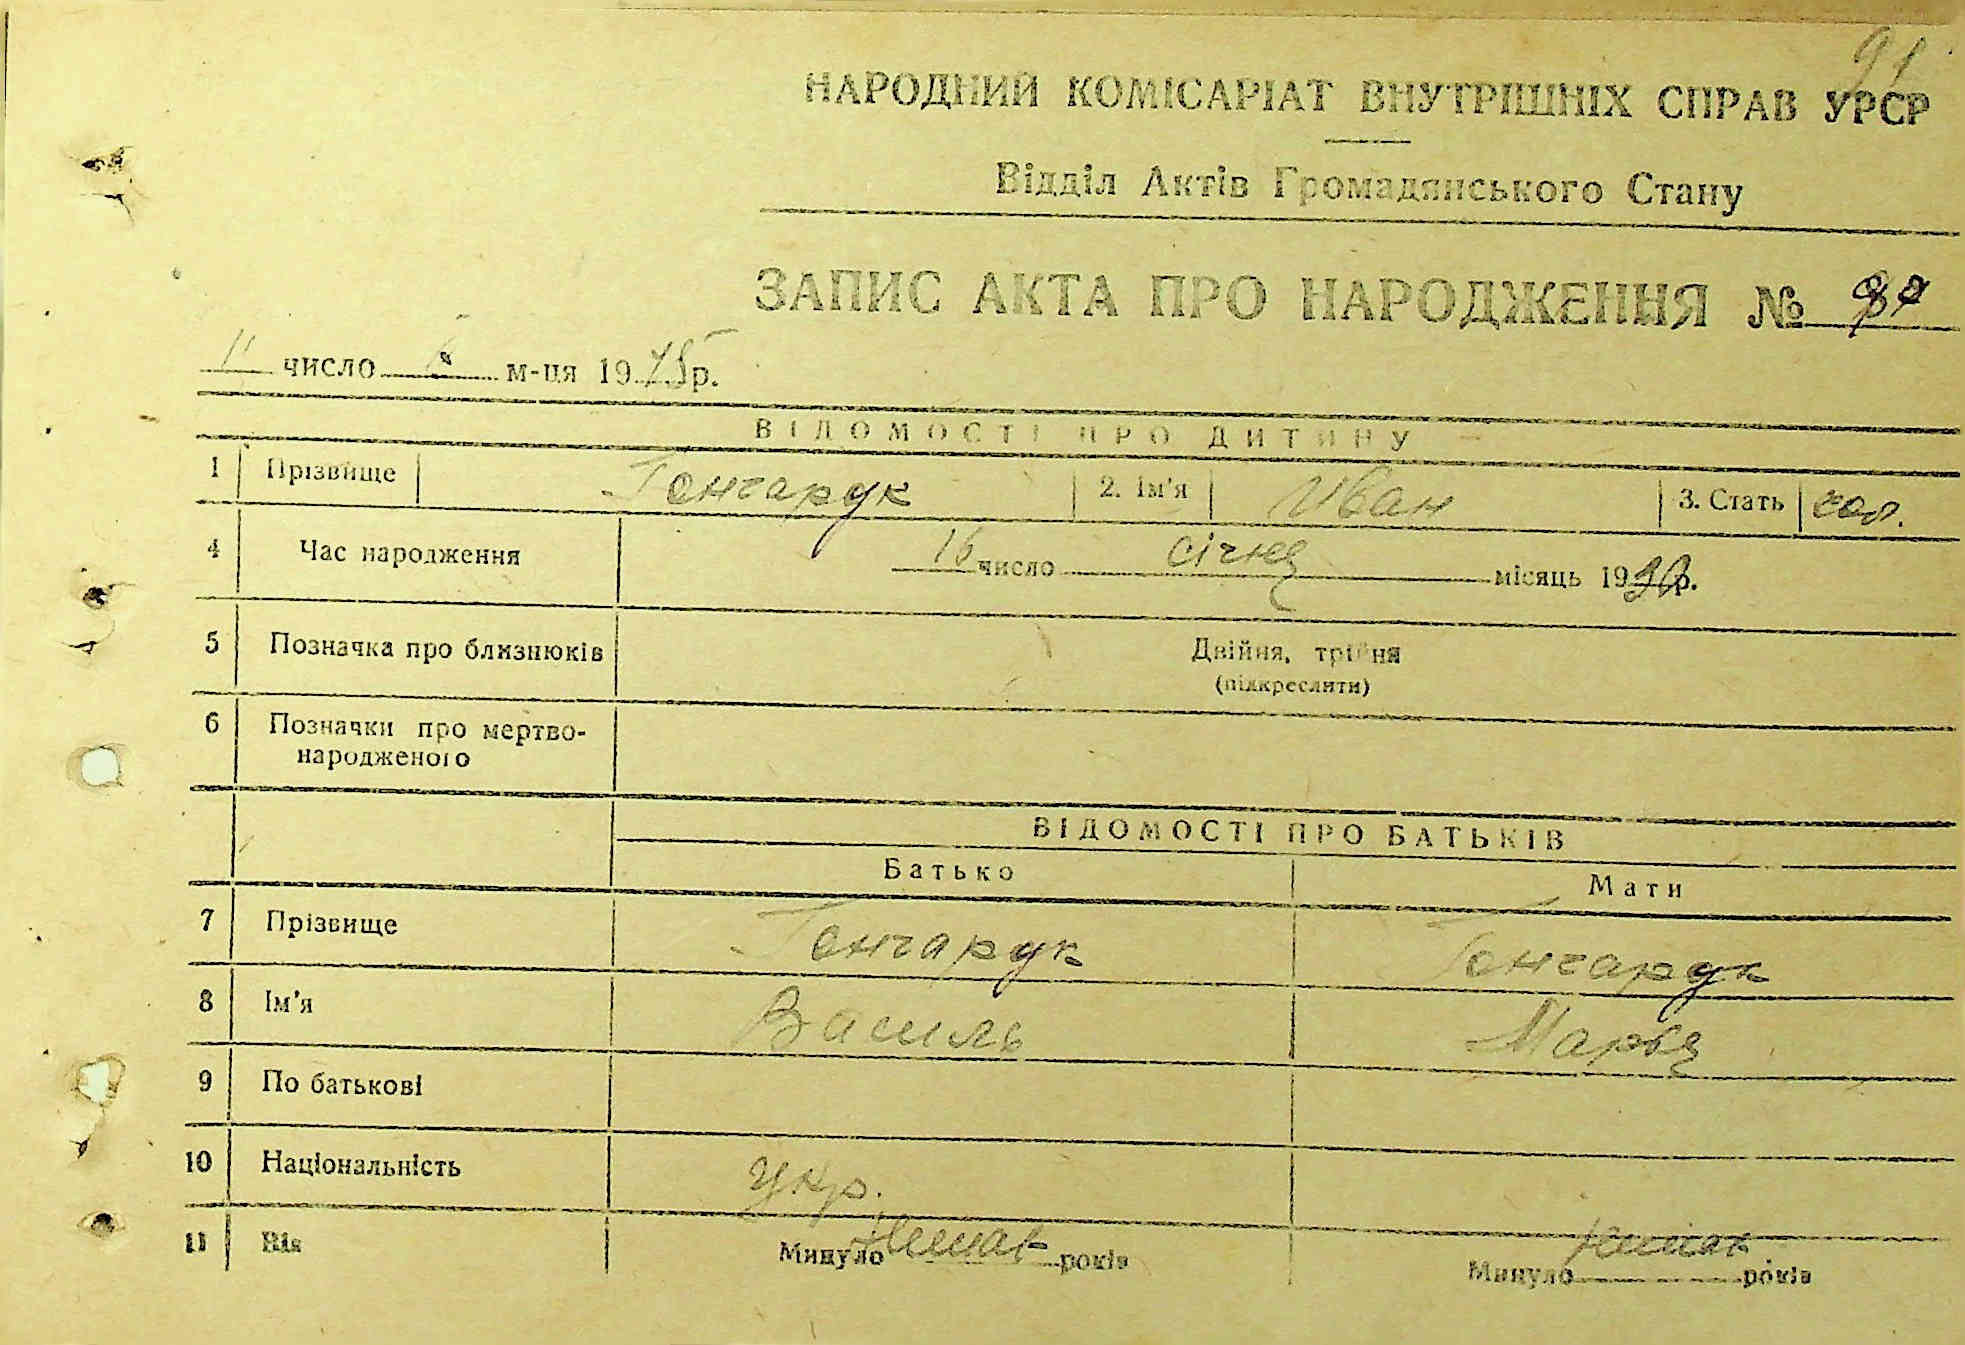 91
НАРОДНИЙ КОМІСАРІАТ ВНУТРІШНІХ СПРАВ УРСР
Відділ Актів Громадянського Стану
ЗАПИС АКТА ПРО НАРОДЖЕННЯ №
11 число м-ця 1945 р.
ВІДОМОСТІ ПРО ДИТИНУ
1 Прізвище Гончарук 2. Ім'я Иван 3. Стать чол.
4 Час народження 16 число січня місяць 1930 р.
5 Позначка про близнюків Двійня, трійня
(підкреслити)
6 Позначки про мертво-
народженого
ВІДОМОСТІ ПРО БАТЬКІВ
Батько Мати
7 Прізвище Гончарук Гончарук
8 Ім'я Василь Марья
9 По батькові
10 Національність Укр.
11 Вік Минуло років Минуло років